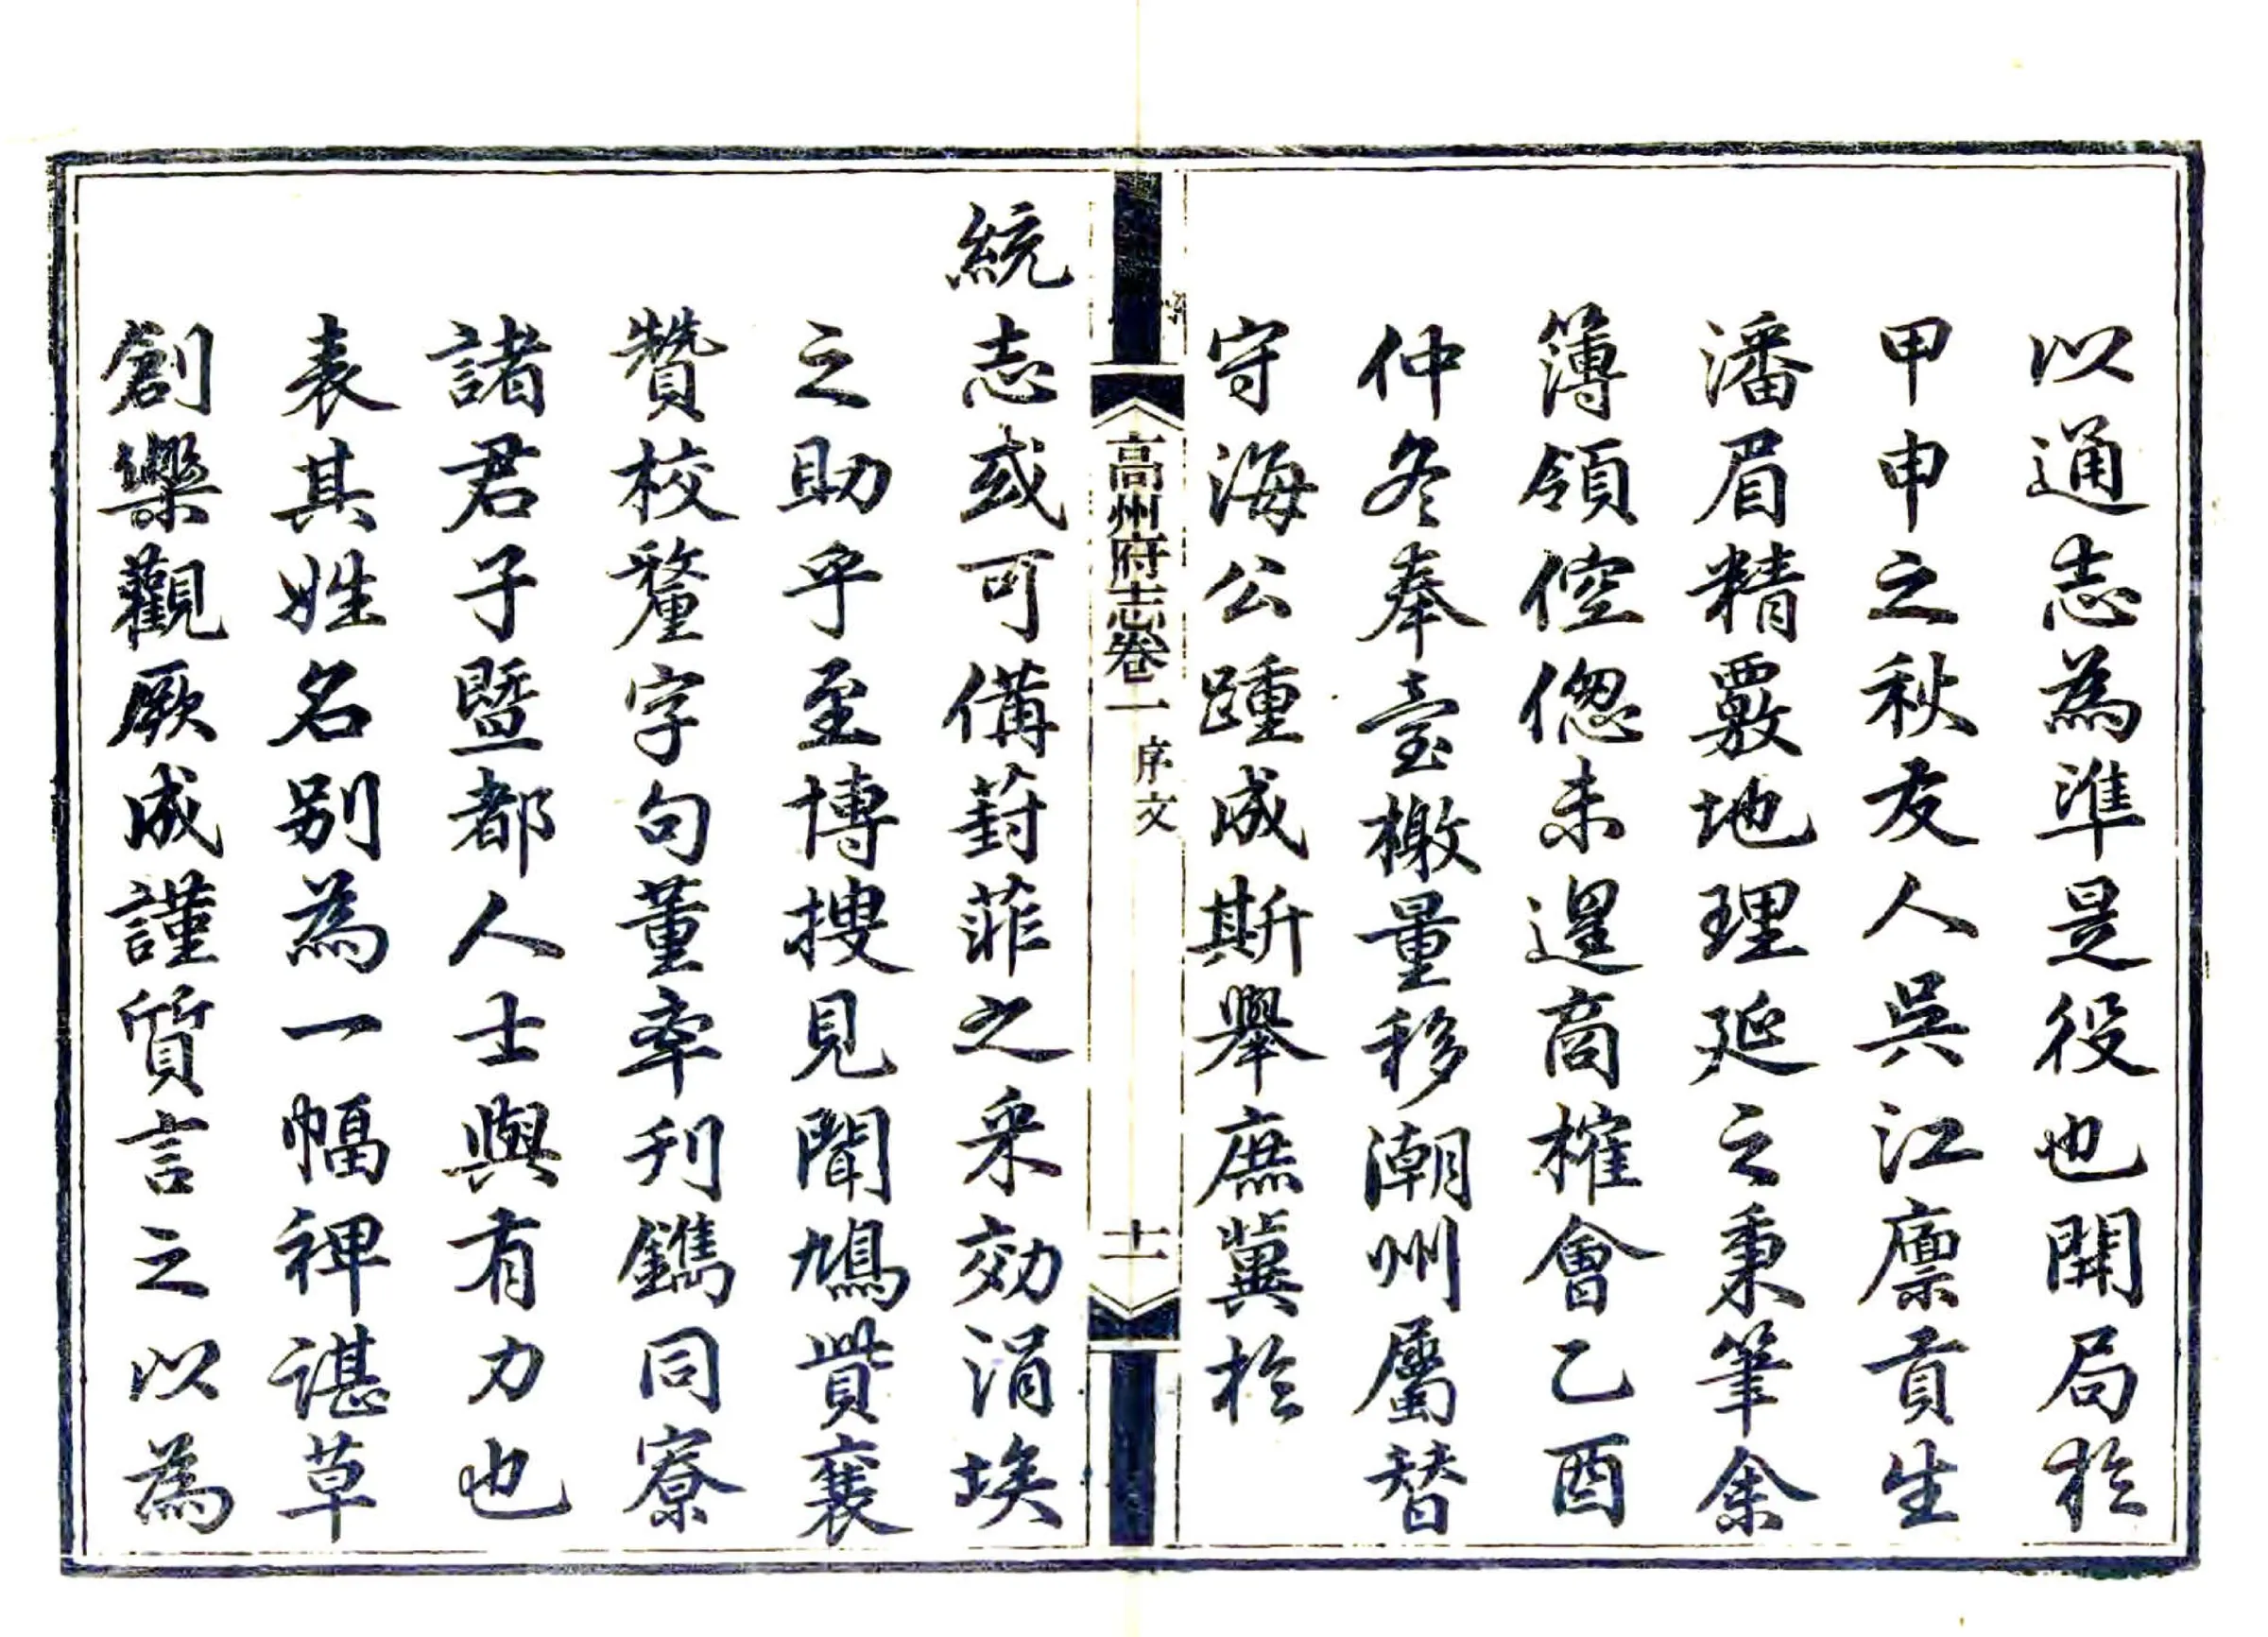 以通志為準是役也開局於
甲申之秋友人吳江廩貢生
潘眉精覈地理延之秉筆余
簿領倥偬未遑商榷會乙酉
仲冬奉臺檄量移潮州屬替
守海公踵成斯舉庶冀於
高州府志卷一 序文 十一
統志或可備葑菲之采効涓埃
之助乎至博搜見聞鳩貲襄
贊校釐字句董率刋鐫同寮
諸君子暨都人士與有力也
表其姓名别為一幅裨諶草
創樂觀厥成謹質言之以為